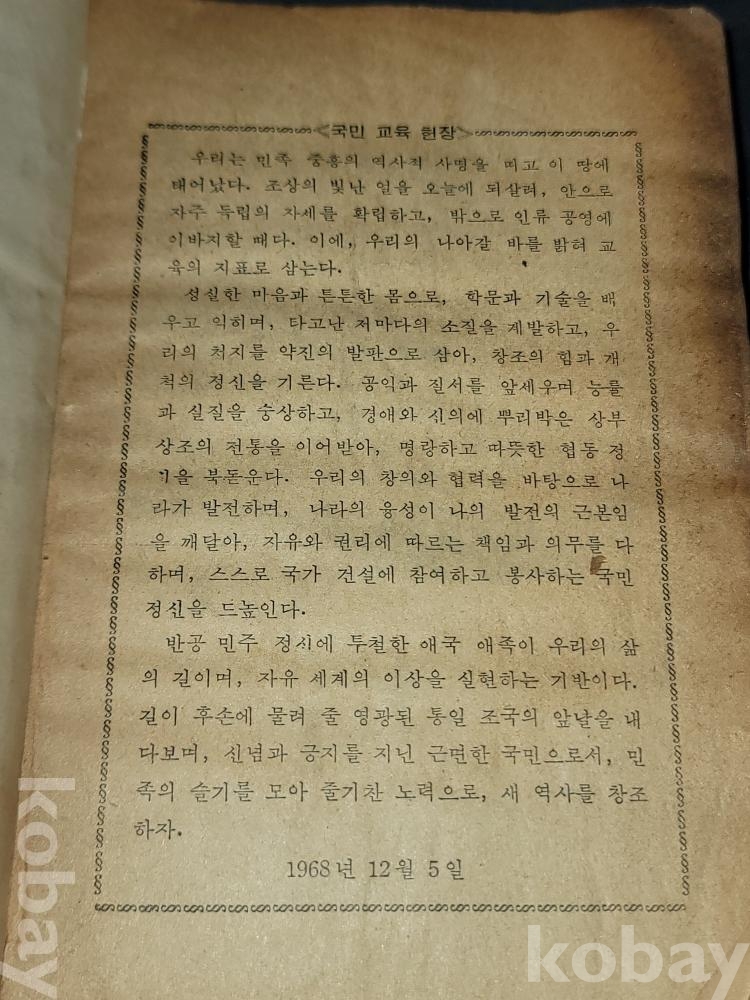 <국민 교육 헌장>
우리는 민족 중흥의 역사적 사명을 띠고 이 땅에
태어났다. 조상의 빛난 얼을 오늘에 되살려, 안으로
자주 독립의 자세를 확립하고, 밖으로 인류 공영에
이바지할 때다. 이에, 우리의 나아갈 바를 밝혀 교
육의 지표로 삼는다.
성실한 마음과 튼튼한 몸으로, 학문과 기술을 배
우고 익히며, 타고난 저마다의 소질을 계발하고, 우
리의 처지를 약진의 발판으로 삼아, 창조의 힘과 개
척의 정신을 기른다. 공익과 질서를 앞세우며 능률
과 실질을 숭상하고, 경애와 신의에 뿌리박은 상부
상조의 전통을 이어받아, 명랑하고 따뜻한 협동 정
기을 북돋운다. 우리의 창의와 협력을 바탕으로 나
라가 발전하며, 나라의 융성이 나의 발전의 근본임
을 깨달아, 자유와 권리에 따르는 책임과 의무를 다
하며, 스스로 국가 건설에 참여하고 봉사하는 국민
정신을 드높인다.
반공 민주 정신에 투철한 애국 애족이 우리의 삶
의 길이며, 자유 세계의 이상을 실현하는 기반이다.
길이 후손에 물려 줄 영광된 통일 조국의 앞날을 내
다보며, 신념과 긍지를 지닌 근면한 국민으로서, 민
족의 슬기를 모아 줄기찬 노력으로, 새 역사를 창조
하자.
1968년 12월 5일
kobay
kobay